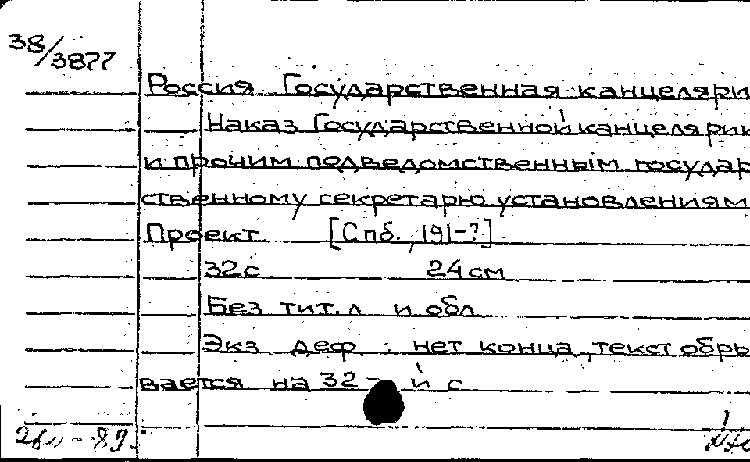 38/3877
Россия Государственная канцеляри
Наказ Государственной канцелярии
и прочим подведомственным государ
ственному секретарю установлениям
Проект [Спб., 191-?]
32 с 24 см
Без тит. л и обл
Экз деф : нет конца, текст обры
вается на 32-й с